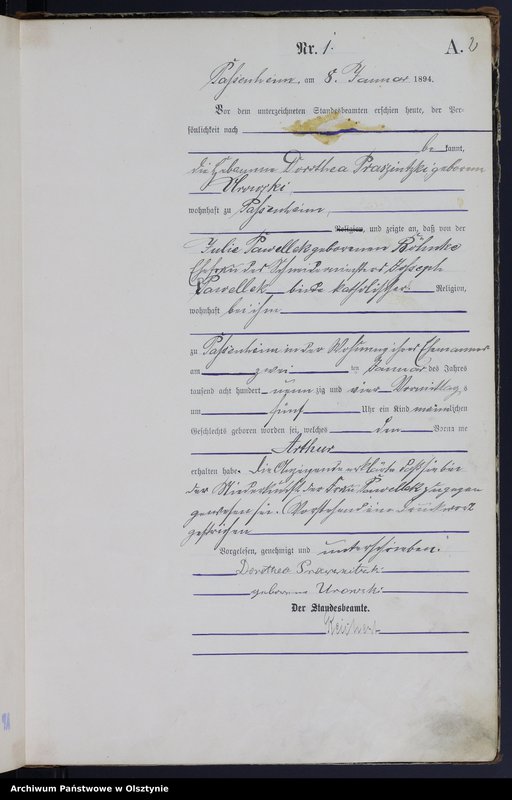 Nr. 1.
A. 2
Passenheim, am 8. Januar 1894.
Vor dem unterzeichneten Standesbeamten erschien heute, der Per-
sönlichkeit nach
be kannt,
die Hebamme Dorothea geborenen
wohnhaft zu Passenheim,
Religion, und zeigte an, daß von der
Julie Pawellek geborenen Böhnke
Ehefrau des Schneidermeisters Joseph
Pawellek beide katholischer Religion,
wohnhaft bei ihm
zu Passenheim in der Wohnung ihres Ehemannes
am zwei ten Januar des Jahres
tausend acht hundert neun zig und vier Vormittag s
um fünf Uhr ein Kind männlichen
Geschlechts geboren worden sei, welches den Vorna me
Arthur
erhalten habe. Die Anzeigende erklärte daß sie bei
der Niederkunft der Frau Pawellek zugegen
gewesen sei. (Vorstehend ein Druckwort
gestrichen
Vorgelesen, genehmigt und unterschrieben.
Dorothea
geborene Urowski
Der Standesbeamte.
Archiwum Państwowe w Olsztynie